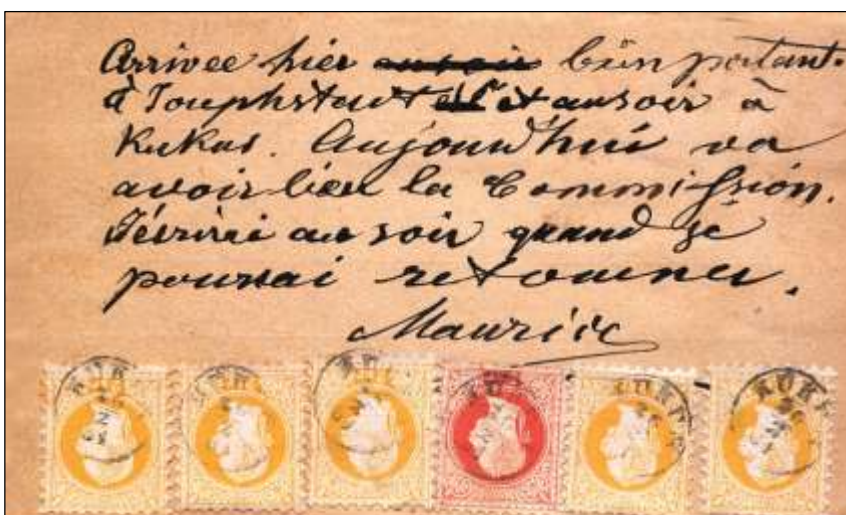 Arrivee hier au soir bien portant.
à Touphstawt et au soir à
Kukus. Aujourd'hui va
avoir lieu la Commission.
J'écrirai au soir quand je
pourrai retourner.
Maurice
KUK
KUK
KUKU
KUKU